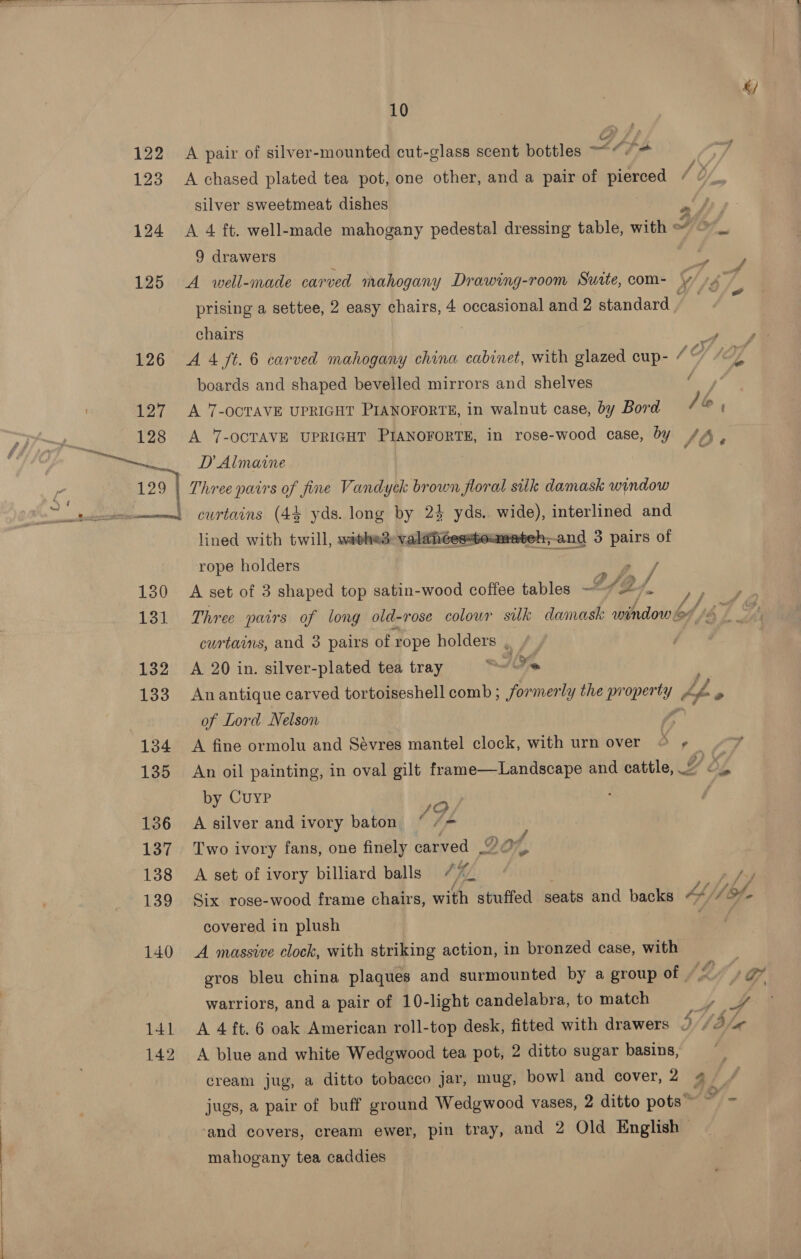 10
122 A pair of silver-mounted cut-glass scent bottles
123 A chased plated tea pot, one other, and a pair of pierced
silver sweetmeat dishes
124 A 4 ft. well-made mahogany pedestal dressing table, with
9 drawers
125 A well-made carved mahogany Drawing-room Suite, com-
prising a settee, 2 easy chairs, 4 occasional and 2 standard
chairs
126 A 4 ft. 6 carved mahogany china cabinet, with glazed cup-
boards and shaped bevelled mirrors and shelves
127 A 7-OCTAVE UPRIGHT PIANOFORTE, in walnut case, by Bord
128 A 7-OCTAVE UPRIGHT PIANOFORTE, in rose-wood case, by
D'Almaine
129 Three pairs of fine Vandyck brown floral silk damask window
curtains (4½ yds. long by 2½ yds. wide), interlined and
lined with twill, with 3 valances to match, and 3 pairs of
rope holders
130 A set of 3 shaped top satin-wood coffee tables
131 Three pairs of long old-rose colour silk damask window
curtains, and 3 pairs of rope holders
132 A 20 in. silver-plated tea tray
133 An antique carved tortoiseshell comb; formerly the property
of Lord Nelson
134 A fine ormolu and Sèvres mantel clock, with urn over
135 An oil painting, in oval gilt frame—Landscape and cattle,
by CUYP
136 A silver and ivory baton
137 Two ivory fans, one finely carved
138 A set of ivory billiard balls
139 Six rose-wood frame chairs, with stuffed seats and backs
covered in plush
140 A massive clock, with striking action, in bronzed case, with
gros bleu china plaques and surmounted by a group of
warriors, and a pair of 10-light candelabra, to match
141 A 4 ft. 6 oak American roll-top desk, fitted with drawers
142 A blue and white Wedgwood tea pot, 2 ditto sugar basins,
cream jug, a ditto tobacco jar, mug, bowl and cover, 2
jugs, a pair of buff ground Wedgwood vases, 2 ditto pots
and covers, cream ewer, pin tray, and 2 Old English
mahogany tea caddies